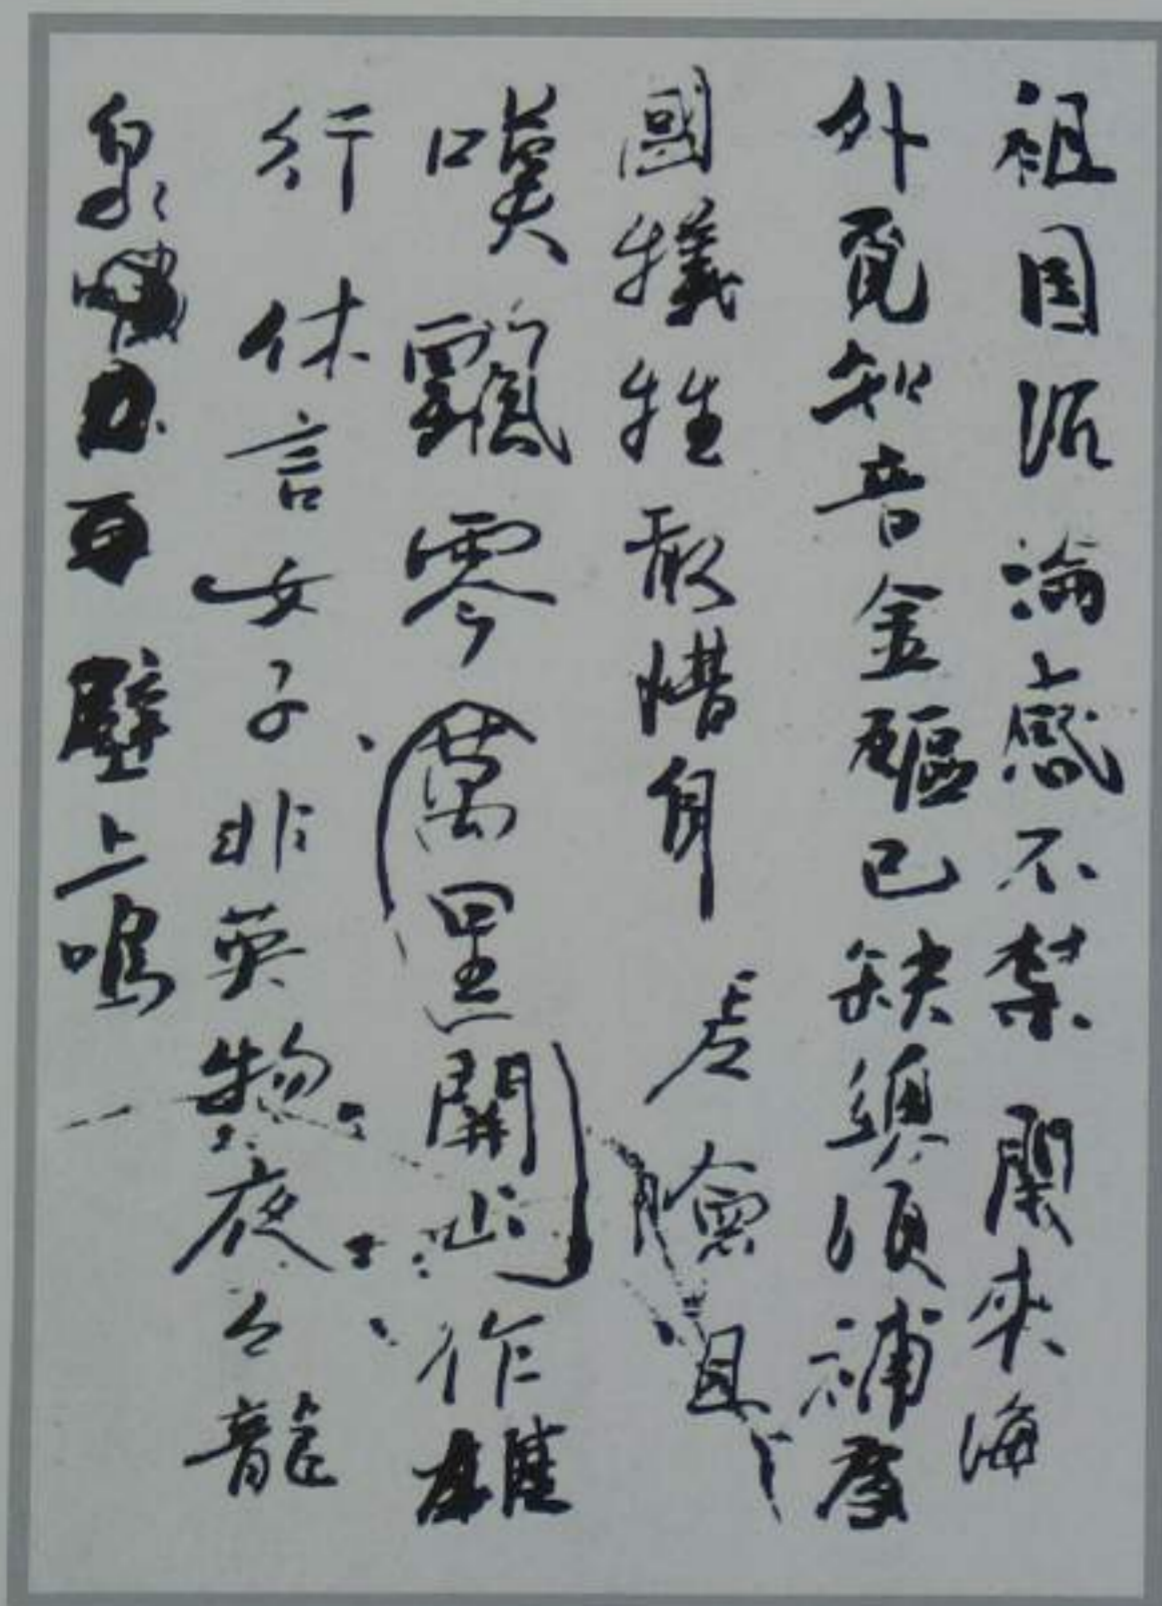 祖国沉淪感不禁閑來海
外覓知音金甌已缺總須補為
國犧牲敢惜身 嗟險阻
嘆飄零萬里關山作雄
行休言女子非英物夜夜龍
泉壁上鳴